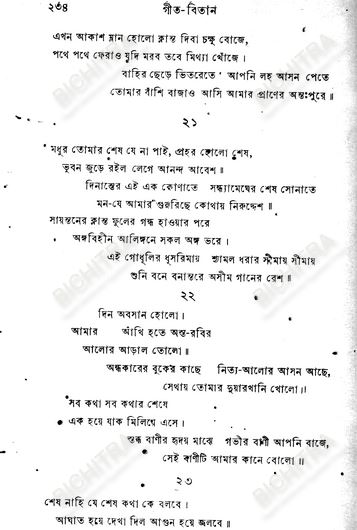 ২৩৪ গীত-বিতান
এখন আকাশ ম্লান হোলো ক্লান্ত দিবা চক্ষু বোজে,
পথে পথে ফেরাও যদি মরব তবে মিথ্যা খোঁজে।
বাহির ছেড়ে ভিতরেতে আপনি লহ আসন পেতে
তোমার বাঁশি বাজাও আসি আমার প্রাণের অন্তঃপুরে॥
২১
মধুর তোমার শেষ যে না পাই, প্রহর হোলো শেষ,
ভুবন জুড়ে রইল লেগে আনন্দ আবেশ॥
দিনান্তের এই এক কোণাতে সন্ধ্যামেঘের শেষ সোনাতে
মন-যে আমার গুঞ্জরিছে কোথায় নিরুদ্দেশ॥
সায়ন্তনের ক্লান্ত ফুলের গন্ধ হাওয়ার পরে
অঙ্গবিহীন আলিঙ্গনে সকল অঙ্গ ভরে।
এই গোধূলির ধূসরিমায় শ্যামল ধরার সীমায় সীমায়
শুনি বনে বনান্তরে অসীম গানের রেশ॥
২২
দিন অবসান হোলো।
আমার আঁখি হতে অস্ত-রবির
আলোর আড়াল তোলো॥
অন্ধকারের বুকের কাছে নিত্য-আলোর আসন আছে,
সেথায় তোমার দুয়ারখানি খোলো।।
সব কথা সব কথার শেষে
এক হয়ে যাক মিলিয়ে এসে।
স্তব্ধ বাণীর হৃদয় মাঝে গভীর বাণী আপনি বাজে,
সেই বাণীটি আমার কানে বোলো॥
২৩
শেষ নাহি যে শেষ কথা কে বলবে।
আঘাত হয়ে দেখা দিল আগুন হয়ে জ্বলবে॥
BICHITRA
BICHITRA
BICHITRA
BICHITRA